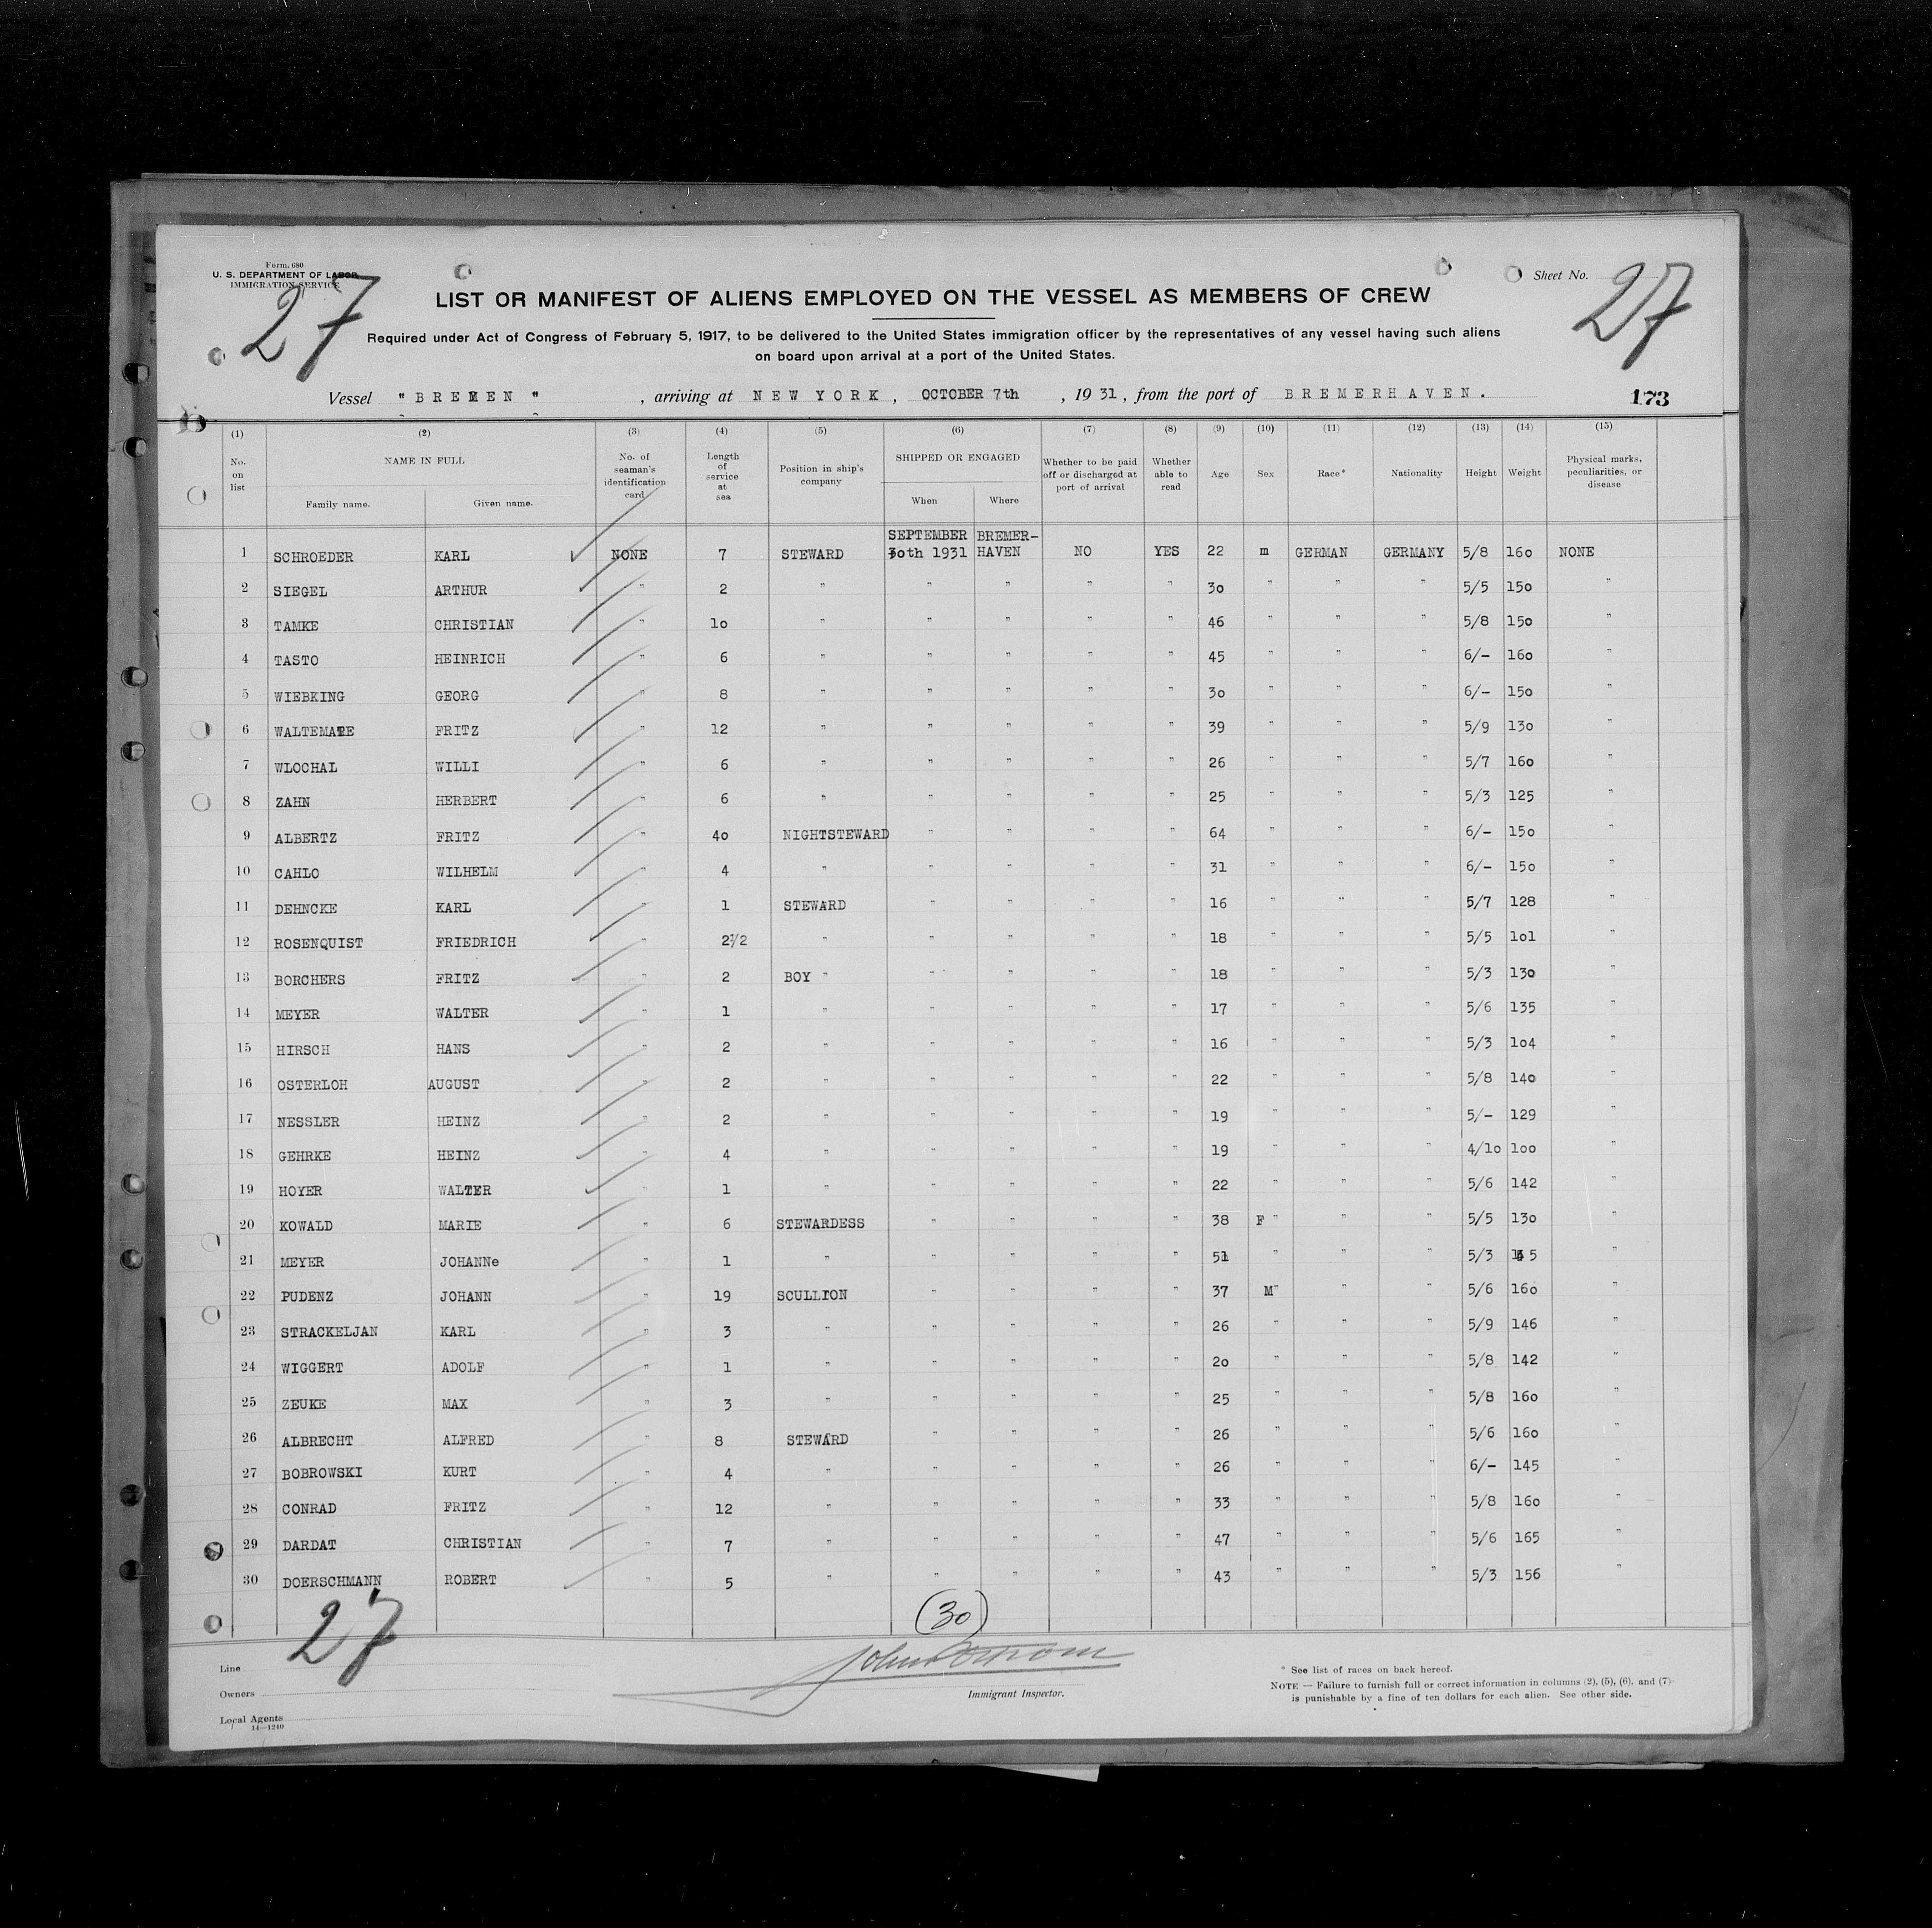 Form. 680
U. S. DEPARTMENT OF LABOR
IMMIGRATION SERVICE
27
Sheet No. 27
LIST OR MANIFEST OF ALIENS EMPLOYED ON THE VESSEL AS MEMBERS OF CREW
Required under Act of Congress of February 5, 1917, to be delivered to the United States immigration officer by the representatives of any vessel having such aliens
on board upon arrival at a port of the United States.
Vessel "BREMEN" , arriving at NEW YORK, OCTOBER 7th , 1931, from the port of BREMERHAVEN. 173
(1) (2) (3) (4) (5) (6) (7) (8) (9) (10) (11) (12) (13) (14) (15)
No. on list NAME IN FULL Family name. Given name. No. of seaman's identification card Length of service at sea Position in ship's company SHIPPED OR ENGAGED When Where Whether to be paid off or discharged at port of arrival Whether able to read Age Sex Race* Nationality Height Weight Physical marks, peculiarities, or disease
1 SCHROEDER KARL NONE 7 STEWARD SEPTEMBER 30th 1931 BREMER-HAVEN NO YES 22 m GERMAN GERMANY 5/8 160 NONE
2 SIEGEL ARTHUR " 2 " " " " " 30 " " " 5/5 150 "
3 TAMKE CHRISTIAN " 10 " " " " " 46 " " " 5/8 150 "
4 TASTO HEINRICH " 6 " " " " " 45 " " " 6/- 160 "
5 WIEBKING GEORG " 8 " " " " " 30 " " " 6/- 150 "
6 WALTEMATE FRITZ " 12 " " " " " 39 " " " 5/9 130 "
7 WLOCHAL WILLI " 6 " " " " " 26 " " " 5/7 160 "
8 ZAHN HERBERT " 6 " " " " " 25 " " " 5/3 125 "
9 ALBERTZ FRITZ " 40 NIGHTSTEWARD " " " " 64 " " " 6/- 150 "
10 CAHLO WILHELM " 4 " " " " " 31 " " " 6/- 150 "
11 DEHNCKE KARL " 1 STEWARD " " " " 16 " " " 5/7 128 "
12 ROSENQUIST FRIEDRICH " 2½ " " " " " 18 " " " 5/5 101 "
13 BORCHERS FRITZ " 2 BOY " " " " " 18 " " " 5/3 130 "
14 MEYER WALTER " 1 " " " " " 17 " " " 5/6 135 "
15 HIRSCH HANS " 2 " " " " " 16 " " " 5/3 104 "
16 OSTERLOH AUGUST " 2 " " " " " 22 " " " 5/8 140 "
17 NESSLER HEINZ " 2 " " " " " 19 " " " 5/- 129 "
18 GEHRKE HEINZ " 4 " " " " " 19 " " " 4/10 100 "
19 HOYER WALTER " 1 " " " " " 22 " " " 5/6 142 "
20 KOWALD MARIE " 6 STEWARDESS " " " " 38 F " " " 5/5 130 "
21 MEYER JOHANNe " 1 " " " " " 51 " " " 5/3 "
22 PUDENZ JOHANN " 19 SCULLION " " " " 37 M" " " 5/6 160 "
23 STRACKELJAN KARL " 3 " " " " " 26 " " " 5/9 146 "
24 WIGGERT ADOLF " 1 " " " " " 20 " " " 5/8 142 "
25 ZEUKE MAX " 3 " " " " " 25 " " " 5/8 160 "
26 ALBRECHT ALFRED " 8 STEWARD " " " " 26 " " " 5/6 160 "
27 BOBROWSKI KURT " 4 " " " " " 26 " " " 6/- 145 "
28 CONRAD FRITZ " 12 " " " " " 33 " " " 5/8 160 "
29 DARDAT CHRISTIAN " 7 " " " " " 47 " " " 5/6 165 "
30 DOERSCHMANN ROBERT " 5 " " " " " 43 " " " 5/3 156 "
27
(30)
John
Immigrant Inspector.
Line
Owners
Local Agents
14—1240
* See list of races on back hereof.
NOTE — Failure to furnish full or correct information in columns (2), (5), (6), and (7)
is punishable by a fine of ten dollars for each alien. See other side.